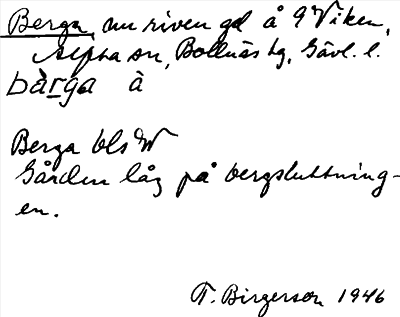 Berga, nu riven gd å 9 Viken,
Alfta sn, Bollnäs tg, Gävl. l.
bàrga à
Berga bls W
Gården låg på bergsluttning-
en.
F. Birgerson 1946